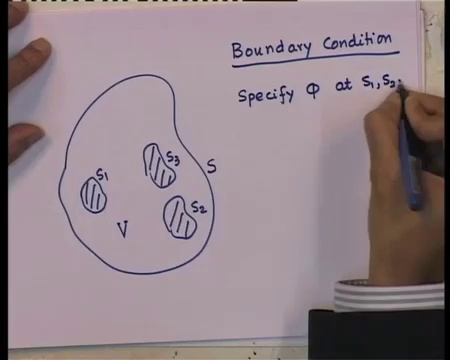 Boundary Condition
Specify Φ at S1, S2,
S3
S
S1
S2
V